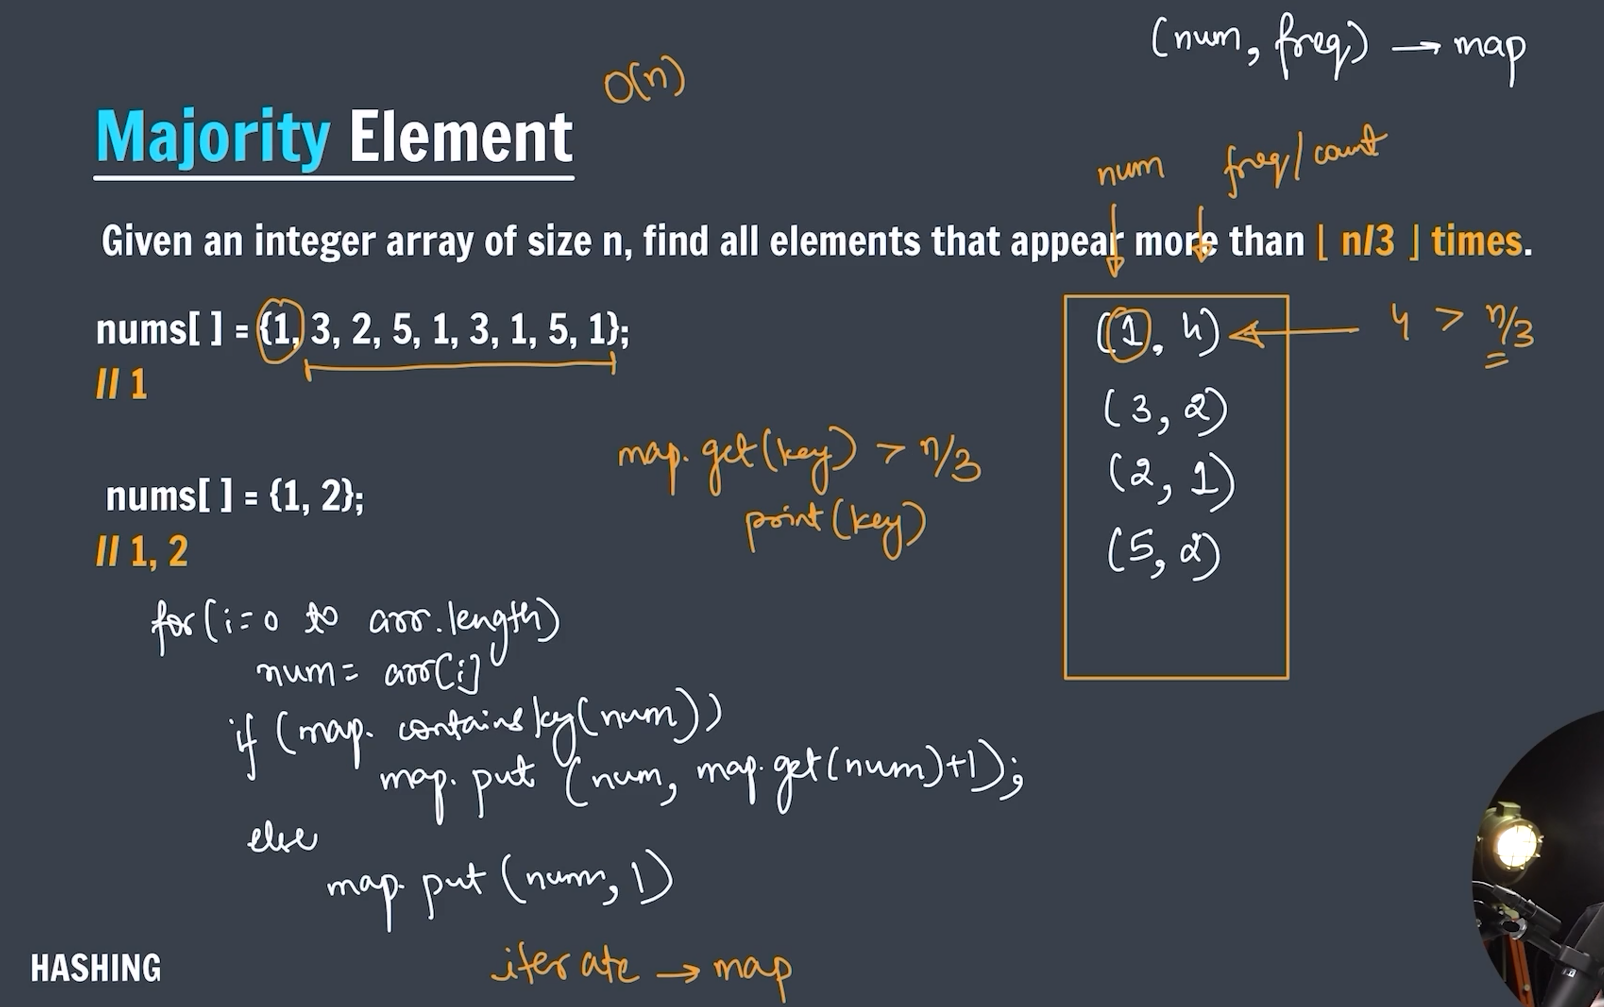 (num, freq) → map
O(n)
Majority Element
num freq/count
Given an integer array of size n, find all elements that appear more than ⌊ n/3 ⌋ times.
nums[ ] = {1, 3, 2, 5, 1, 3, 1, 5, 1};
// 1
(1, 4) ← 4 > n/3
(3, 2)
(2, 1)
(5, 2)
map.get(key) > n/3
print(key)
nums[ ] = {1, 2};
// 1, 2
for(i=0 to arr.length)
num= arr[i]
if (map. containskey(num))
map. put (num, map.get(num)+1);
else
map. put (num, 1)
iterate → map
HASHING